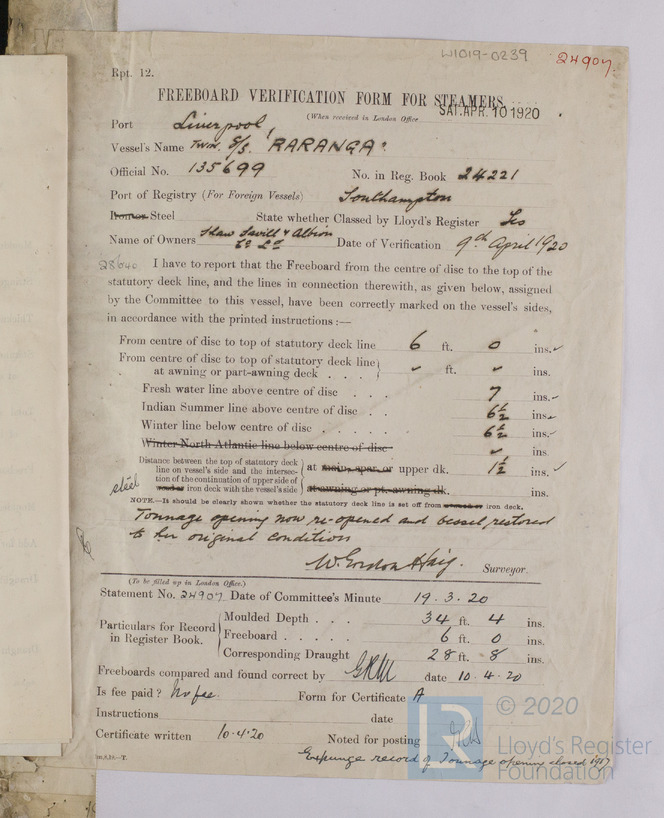 W1019-0239
24907.
Rpt. 12.
FREEBOARD VERIFICATION FORM FOR STEAMERS.
(When received in London Office SAT. APR. 10 1920
Port Liverpool,
Vessel's Name Twin S/S. "RARANGA"
Official No. 135699 No. in Reg. Book 24221
Port of Registry (For Foreign Vessels) Southampton
Iron or Steel State whether Classed by Lloyd's Register Yes
Name of Owners Shaw Savill & Albion Co Ld Date of Verification 9th April 1920
28640 I have to report that the Freeboard from the centre of disc to the top of the
statutory deck line, and the lines in connection therewith, as given below, assigned
by the Committee to this vessel, have been correctly marked on the vessel's sides,
in accordance with the printed instructions :—
From centre of disc to top of statutory deck line 6 ft. 0 ins.
From centre of disc to top of statutory deck line
at awning or part-awning deck . . . ft. ins.
Fresh water line above centre of disc . . . 7 ins.
Indian Summer line above centre of disc . . 6½ ins.
Winter line below centre of disc . . . . . 6½ ins.
Winter North Atlantic line below centre of disc ins.
Distance between the top of statutory deck
line on vessel's side and the intersec-
tion of the continuation of upper side of
steel wood or iron deck with the vessel's side
at main, spar, or upper dk. 1½ ins.
at awning or pt. awning dk. ins.
NOTE.—It should be clearly shown whether the statutory deck line is set off from wood or iron deck.
Tonnage opening now re-opened and vessel restored
to her original condition
W. Gordon Haig. Surveyor.
(To be filled up in London Office.)
Statement No. 24907 Date of Committee's Minute 19.3.20
Particulars for Record
in Register Book.
Moulded Depth . . . 34 ft. 4 ins.
Freeboard . . . . . 6 ft. 0 ins.
Corresponding Draught 28 ft. 8 ins.
Freeboards compared and found correct by date 10.4.20
Is fee paid? No fee. Form for Certificate A
Instructions date
Certificate written 10.4.20 Noted for posting
Expunge record of Tonnage opening closed 1917
© 2020
Lloyd's Register
Foundation